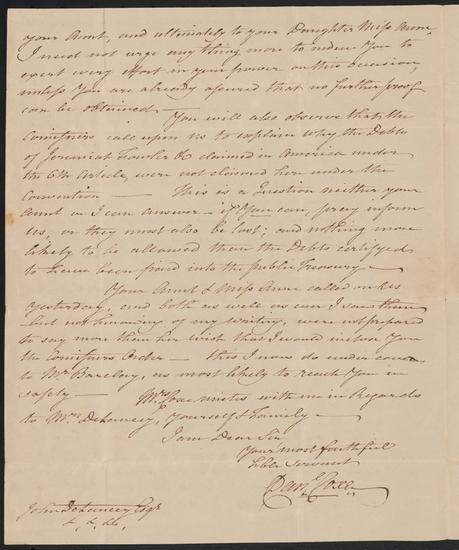 your Aunt, and ultimately to your Daughter Miss Anne
I need not urge any thing more to induce You to
exert every effort in your power on this occasion,
unless You are already assured that no further proof
can be obtained —
You will also observe that, the
Comissrs call upon us to explain why the Debts
of Jeremiah Fowler &c claimed in America under
the 6th Article, were not claimed here under the
Convention — This is a Question neither your
Aunt or I can answer — if You can, pray inform
us, or they must also be lost; and nothing more
likely to be allowed than the Debts certifyed
to have been paid into the public Treasury —
Your Aunt & Miss Anne called on us
Yesterday, and both as well as ever I saw them
but not knowing of my writing, were not prepared
to say more than her wish that I would inclose You
the Comissrs Order — this I now do under cover
to Mr Barclay, as most likely to reach You in
safety — Mrs Coxe unites with me in Regards
to Mrs Delancey, Yourself & Family —
I am Dear Sir
Your most faithful
Hble Servant
Danl Coxe
John Delancey Esqr
&c, &c, &c,